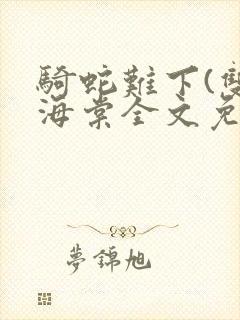 騎蛇難下(雙
海棠全文免
夢錦旭